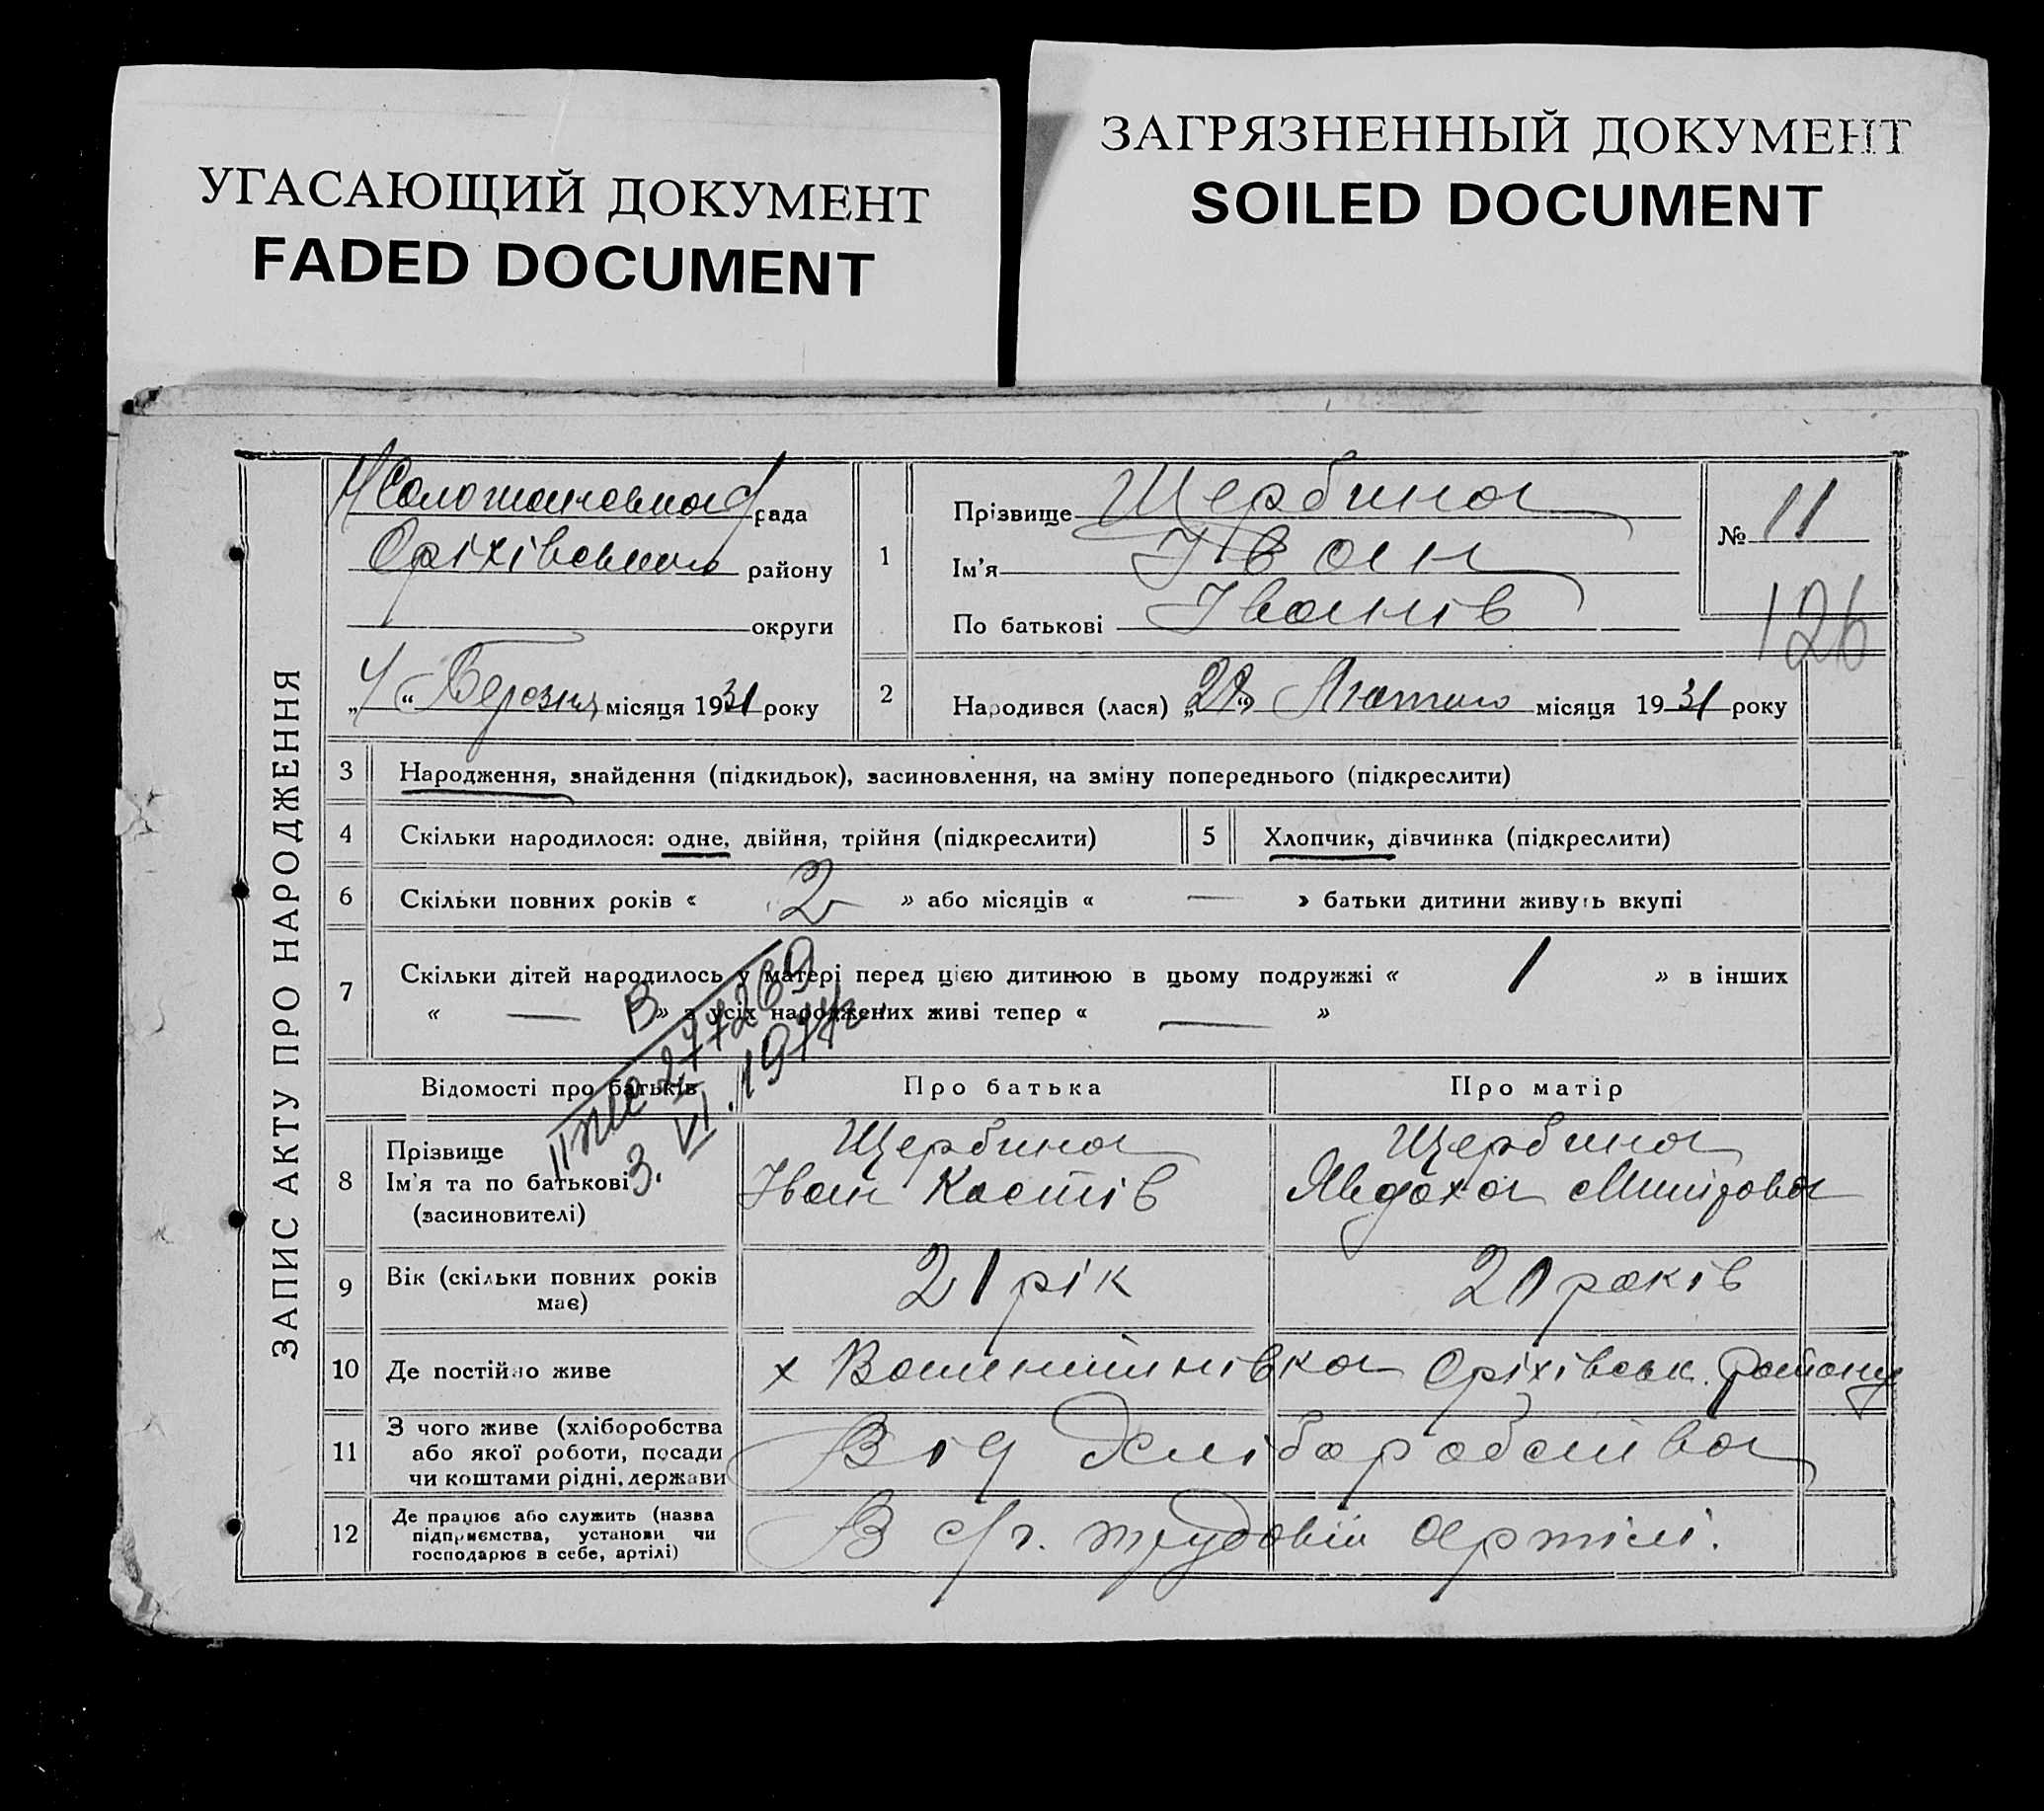 УГАСАЮЩИЙ ДОКУМЕНТ
FADED DOCUMENT
ЗАГРЯЗНЕННЫЙ ДОКУМЕНТ
SOILED DOCUMENT
ЗАПИС АКТУ ПРО НАРОДЖЕННЯ
рада
Оріхівського району
округи
„4“ Березня місяця 1931 року
1
Прізвище Щербина
Ім'я Іван
По батькові Іванів
№ 11
126
2 Народився (лася) „ “ Лютого місяця 1931 року
3 Народження, знайдення (підкидьок), засиновлення, на зміну попереднього (підкреслити)
4 Скільки народилося: одне, двійня, трійня (підкреслити)
5 Хлопчик, дівчинка (підкреслити)
6 Скільки повних років « 2 » або місяців « — » батьки дитини живуть вкупі
7 Скільки дітей народилось у матері перед цією дитиною в цьому подружжі « 1 » в інших
« — » з усіх народжених живі тепер « — »
277269
3. VI. 1977г.
Відомості про батьків
Про батька
Про матір
8 Прізвище
Ім'я та по батькові
(засиновителі)
Щербина
Іван Костів
Щербина
Явдоха
9 Вік (скільки повних років
має)
21 рік
20 років
10 Де постійно живе
х Оріхівськ. району
11 З чого живе (хліборобства
або якої роботи, посади
чи коштами рідні, держави
Від Хліборобства
12 Де працює або служить (назва
підприємства, установи чи
господарює в себе, артілі)
В с/г. трудовій артілі.